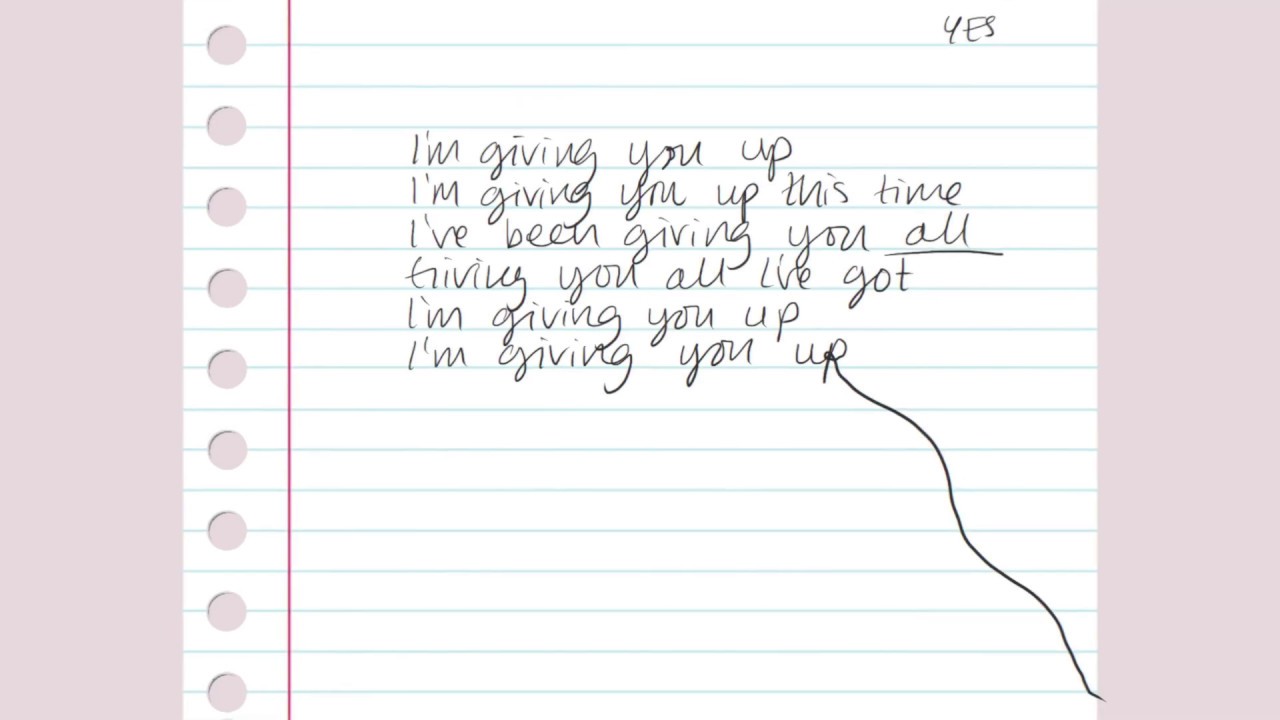 YES
I'm giving you up
I'm giving you up this time
I've been giving you all
Giving you all I've got
I'm giving you up
I'm giving you up